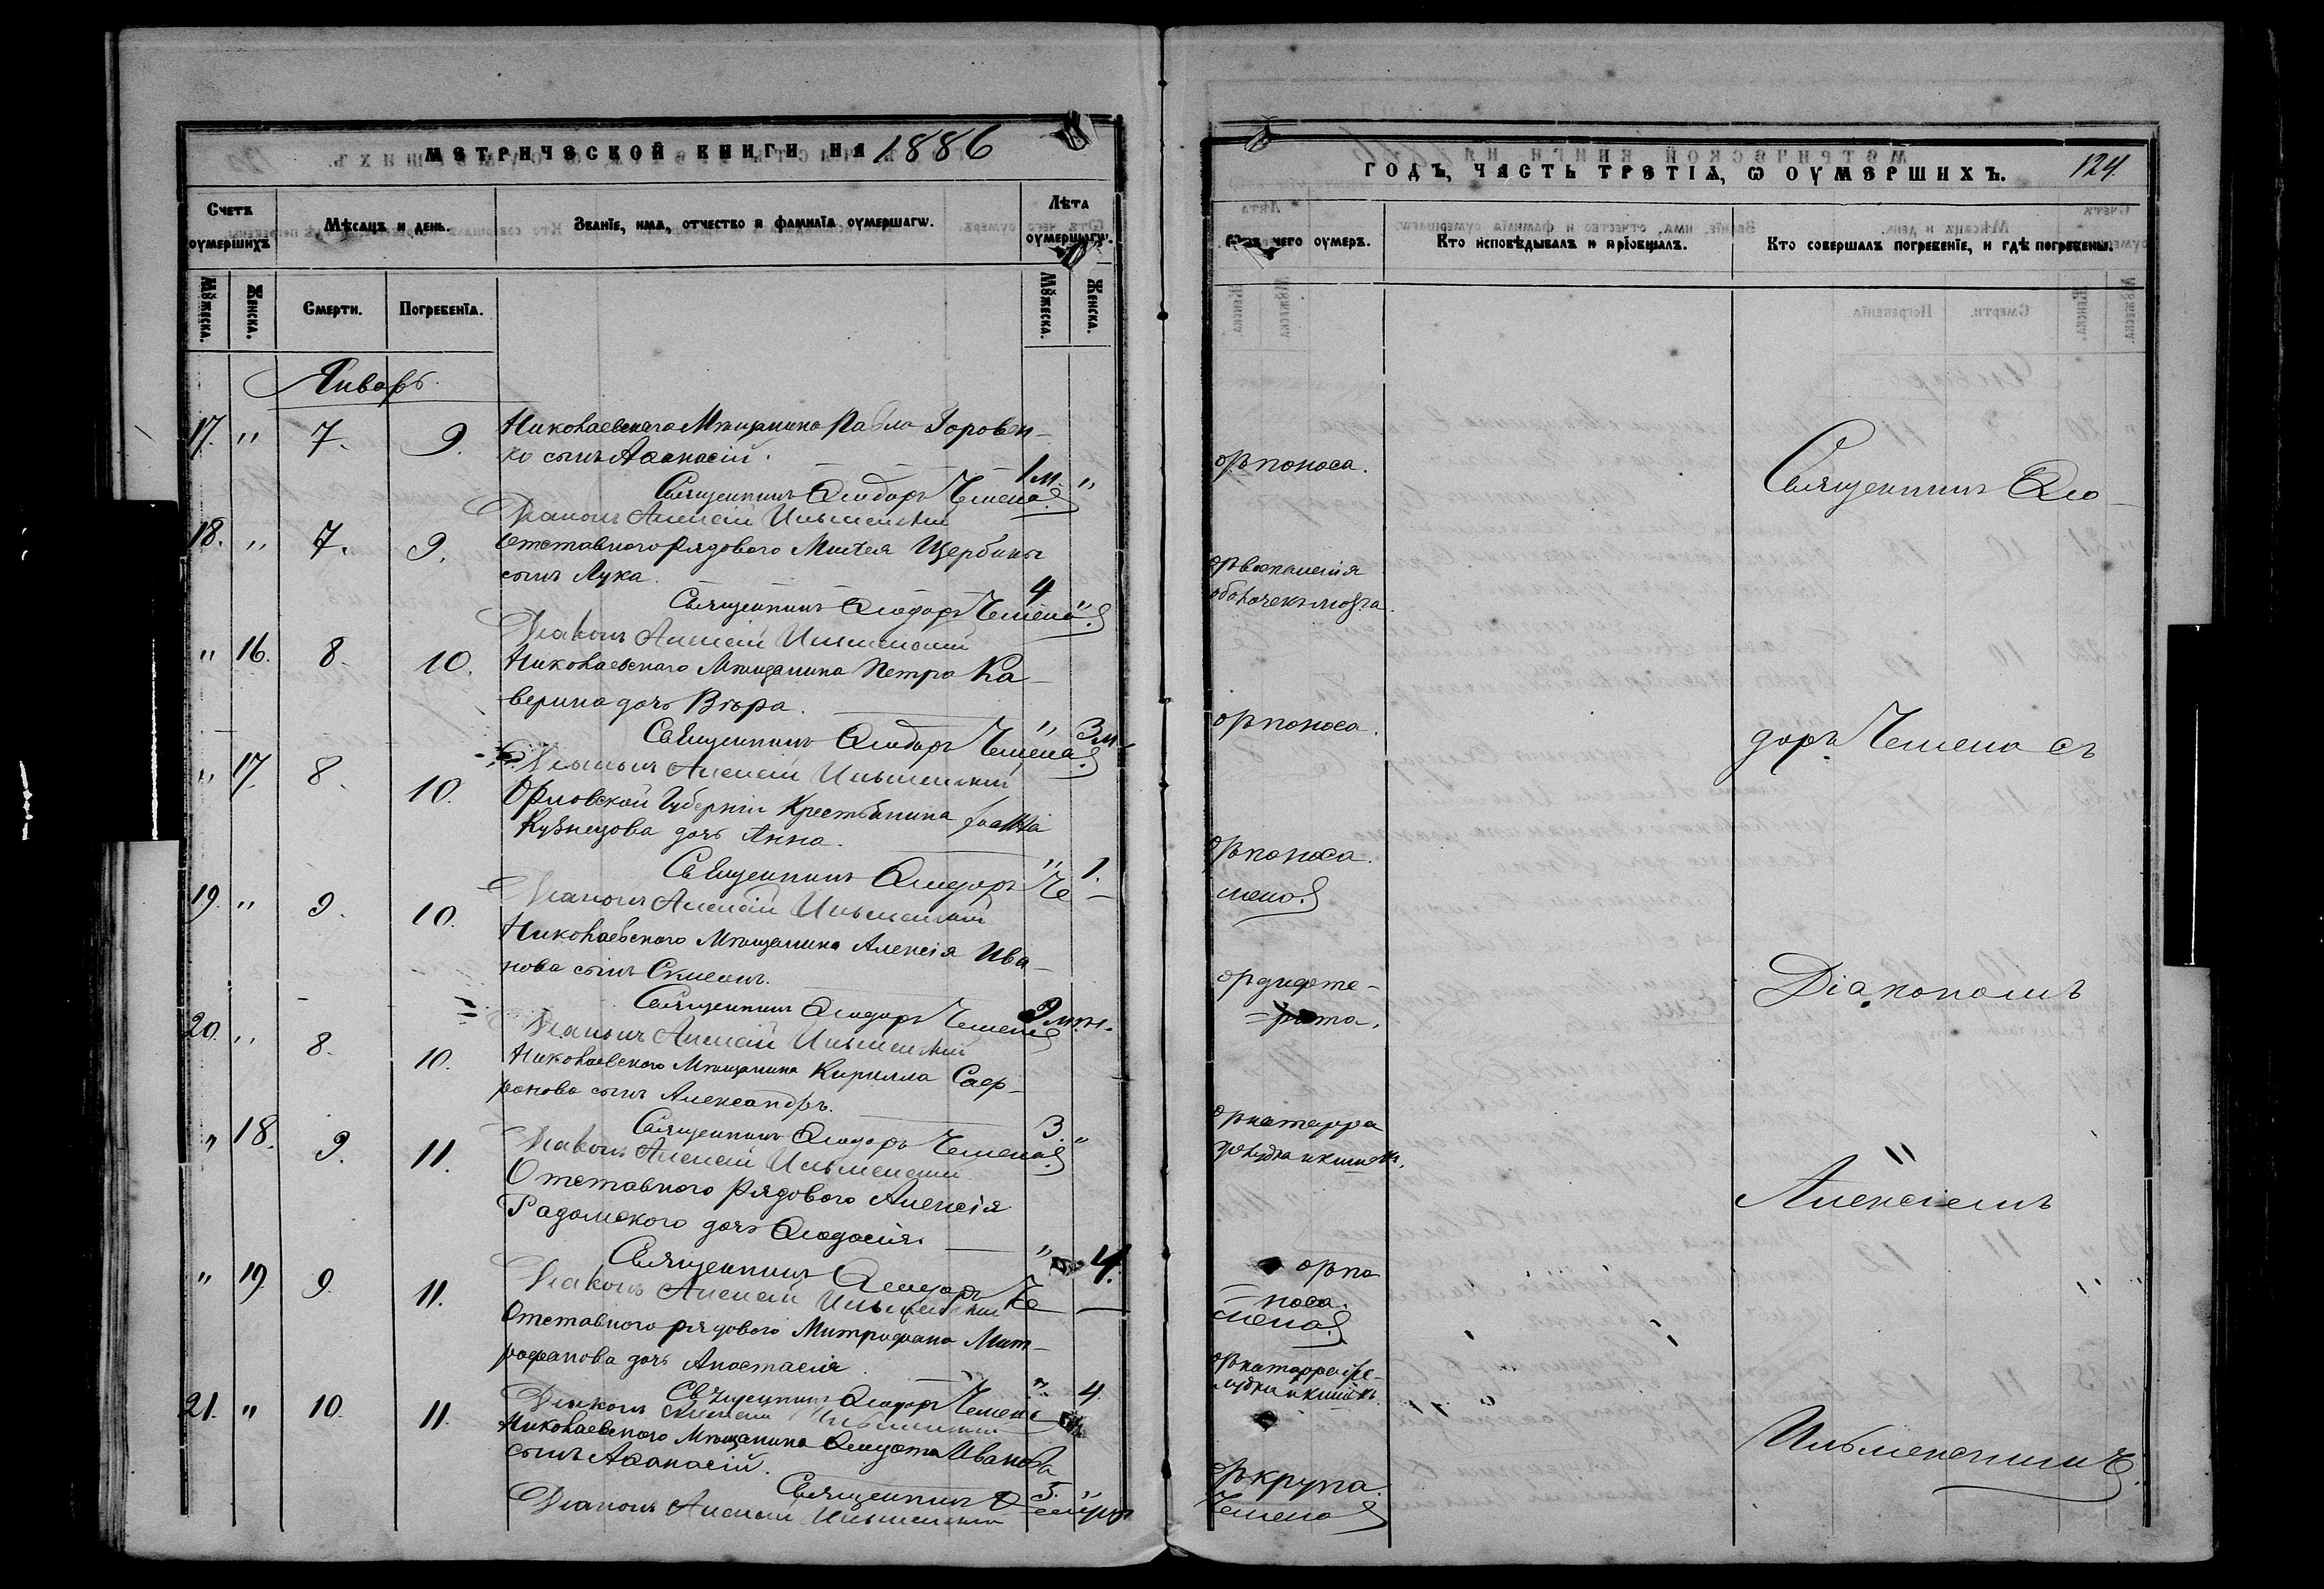 МЕТРИЧЕСКОЙ КНИГИ НА 1886
Счетъ оумершихъ
Мѣсяцъ и день.
Званїе, имя, отчество и фамилїа оумершагѡ.
Лѣта оумершагѡ.
Мꙋжеска.
Женска.
Смерти.
Погребенїа.
Мꙋжеска.
Женска.
Январь.
17. " 7. 9. Николаевскаго Мѣщанина Павла Горовен-
ко сынъ Аѳанасій. 1 м. "
Священникъ Ѳеодоръ Чемена
Діаконъ Алексій Ильменскій
18. " 7. 9. Отставного рядового Михея Щербины
сынъ Лука. 4 "
Священникъ Ѳеодоръ Чемена
Діаконъ Алексій Ильменскій
" 16. 8. 10. Николаевского Мѣщанина Петра Ка-
верина дочь Вѣра. " 3 м.
Священникъ Ѳеодоръ Чемена
Діаконъ Алексій Ильменскій
" 17. 8. 10. Орловской Губерніи Крестьянина
Кузнецова дочь Анна. " 1.
Священникъ Ѳеодоръ Че-
Діаконъ Алексій Ильменскій
19. " 9. 10. Николаевского Мѣщанина Алексія Ива-
нова сынъ Симеонъ. 9 м.
Священникъ Ѳеодоръ Чемена
Діаконъ Алексій Ильменскій
20. " 8. 10. Николаевского Мѣщанина Кирилла Саф-
ронова сынъ Александръ. 3. "
Священникъ Ѳеодоръ Чемена
Діаконъ Алексій Ильменскій
" 18. 9. 11. Отставного рядового Алексія
Радомского дочь Ѳеодосія. " 4.
Священникъ Ѳеодоръ Че-
Діаконъ Алексій Ильменскій
" 19. 9. 11. Отставного рядового Митрофана Мит-
рофанова дочь Анастасія. " 4.
Священникъ Ѳеодоръ Чемена
Діаконъ Алексій Ильменскій
21. " 10. 11. Николаевского Мѣщанина Иванова
сынъ Аѳанасій. 5. "
Священникъ Ѳеодоръ
Діаконъ Алексій Ильменскій
ГОДЪ, ЧАСТЬ ТРЕТІѦ, Ѡ ОУМЕРШИХЪ. 124.
Ѿъ чего оумеръ.
Кто исповѣдывалъ и прїобщалъ.
Кто совершалъ погребенїе, и гдѣ погребены.
отъ поноса.
Священникъ Ѳео-
отъ воспаленія
оболочекъ мозга.
отъ поноса.
доръ Чемена съ
отъ поноса.
мена
отъ дифте-
рита.
Діакономъ
отъ катарра
желудка и кишекъ.
Алексіемъ
отъ по-
носа.
мена
отъ катарра же-
лудка и кишекъ
Ильменскимъ.
отъ крупа.
Чемена